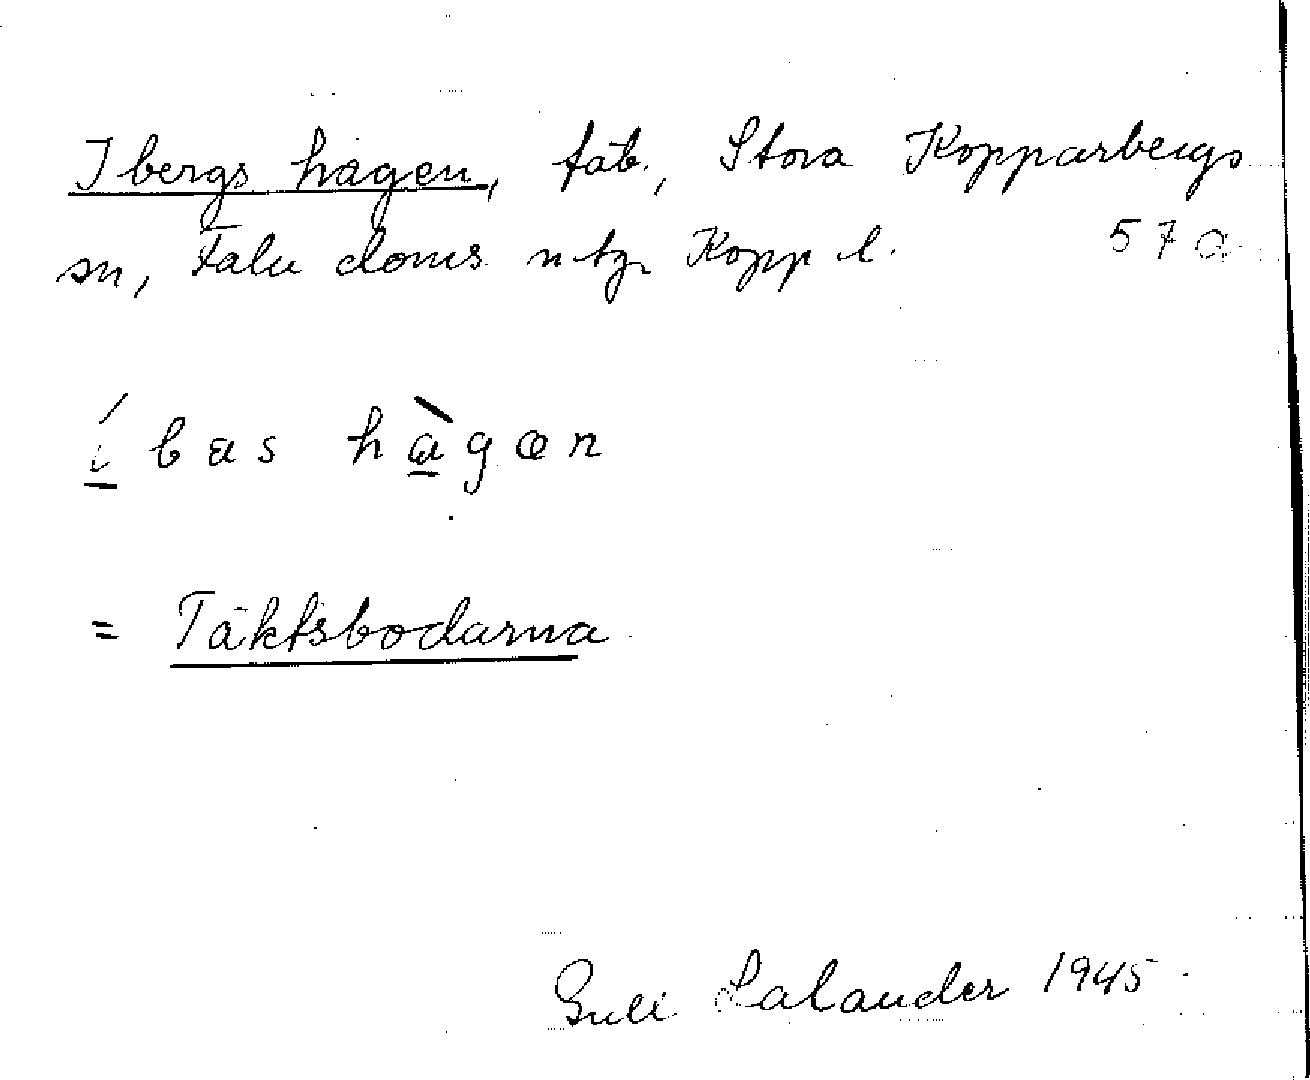 Ibergs hagen, fäb., Stora Kopparbergs
sn, Falu doms ntg Kopp l. 57 a
í bas hàgən
= Täktsbodarna
Salander 1945